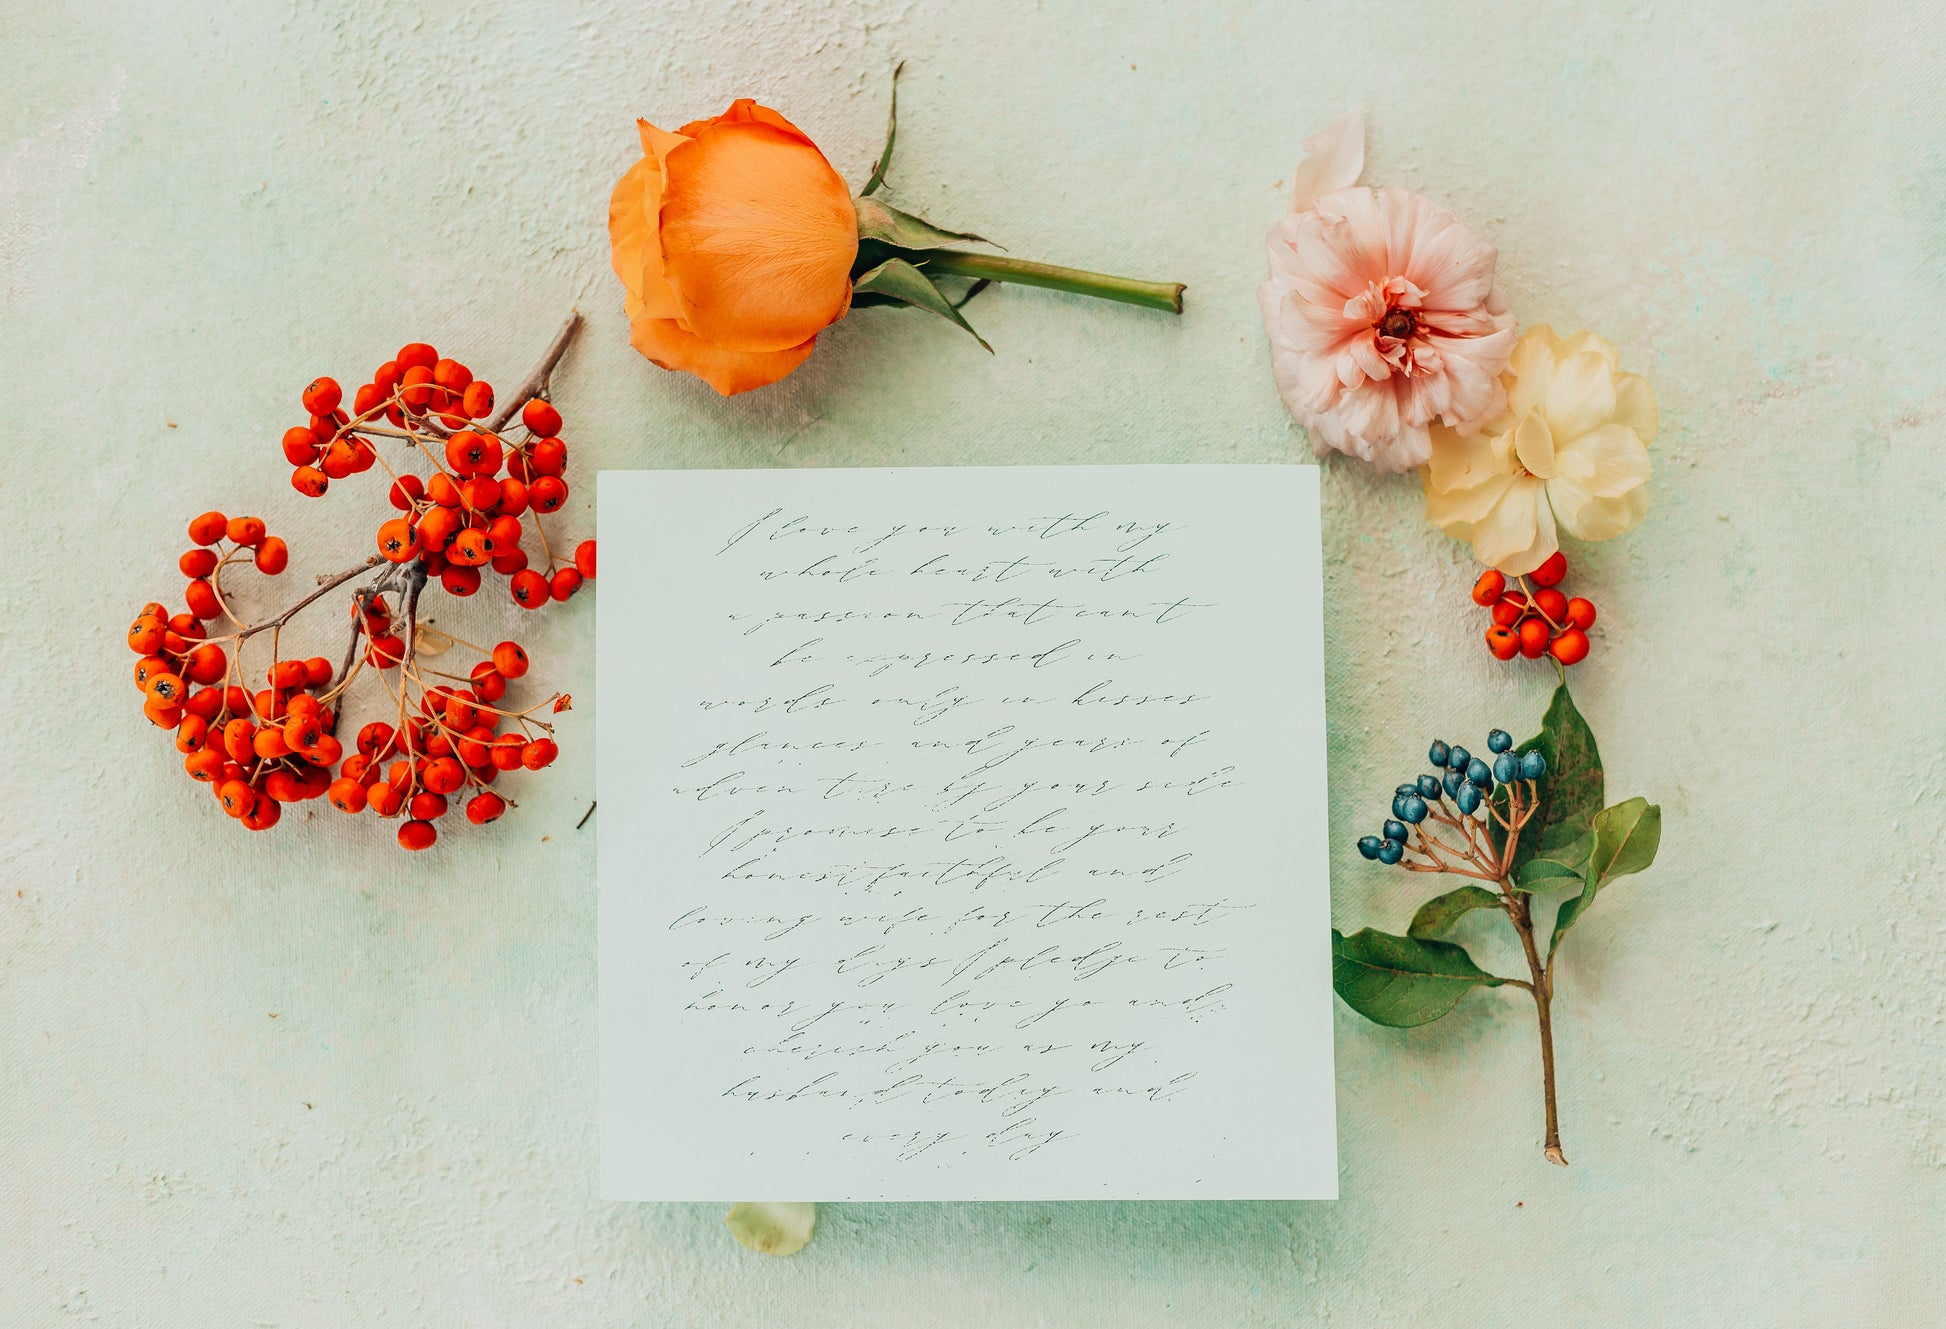 I love you with my
whole heart with
a passion that can't
be expressed in
words only in kisses
glances and years of
adventure by your side
I promise to be your
honest faithful and
loving wife for the rest
of my days I pledge to
honor you love yo and
cherish you as my
husband today and
every day